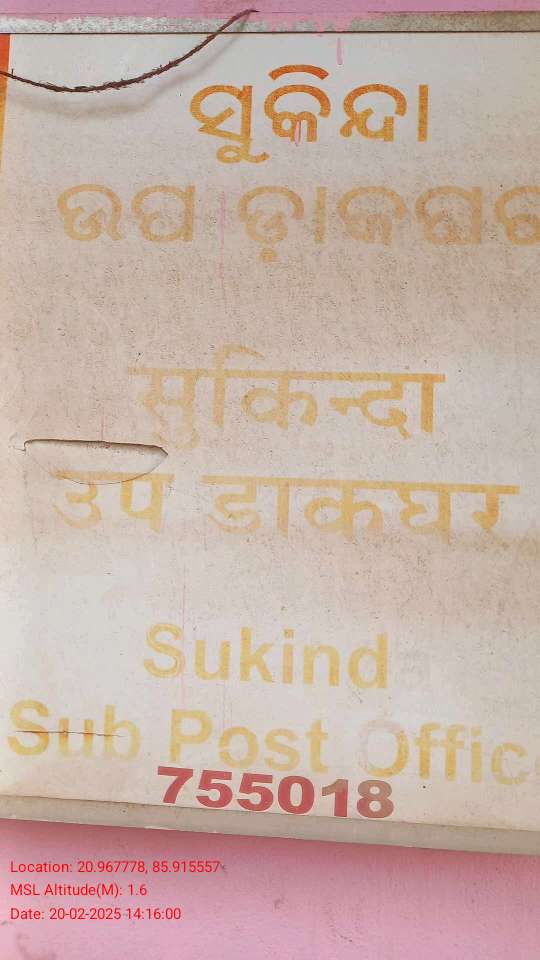 ସୁକିନ୍ଦା
ଉପ ଡ଼ାକଘର
सुकिन्दा
उप डाकघर
Sukinda
Sub Post Office
755018
Location: 20.967778, 85.915557
MSL Altitude(M): 1.6
Date: 20-02-2025 14:16:00